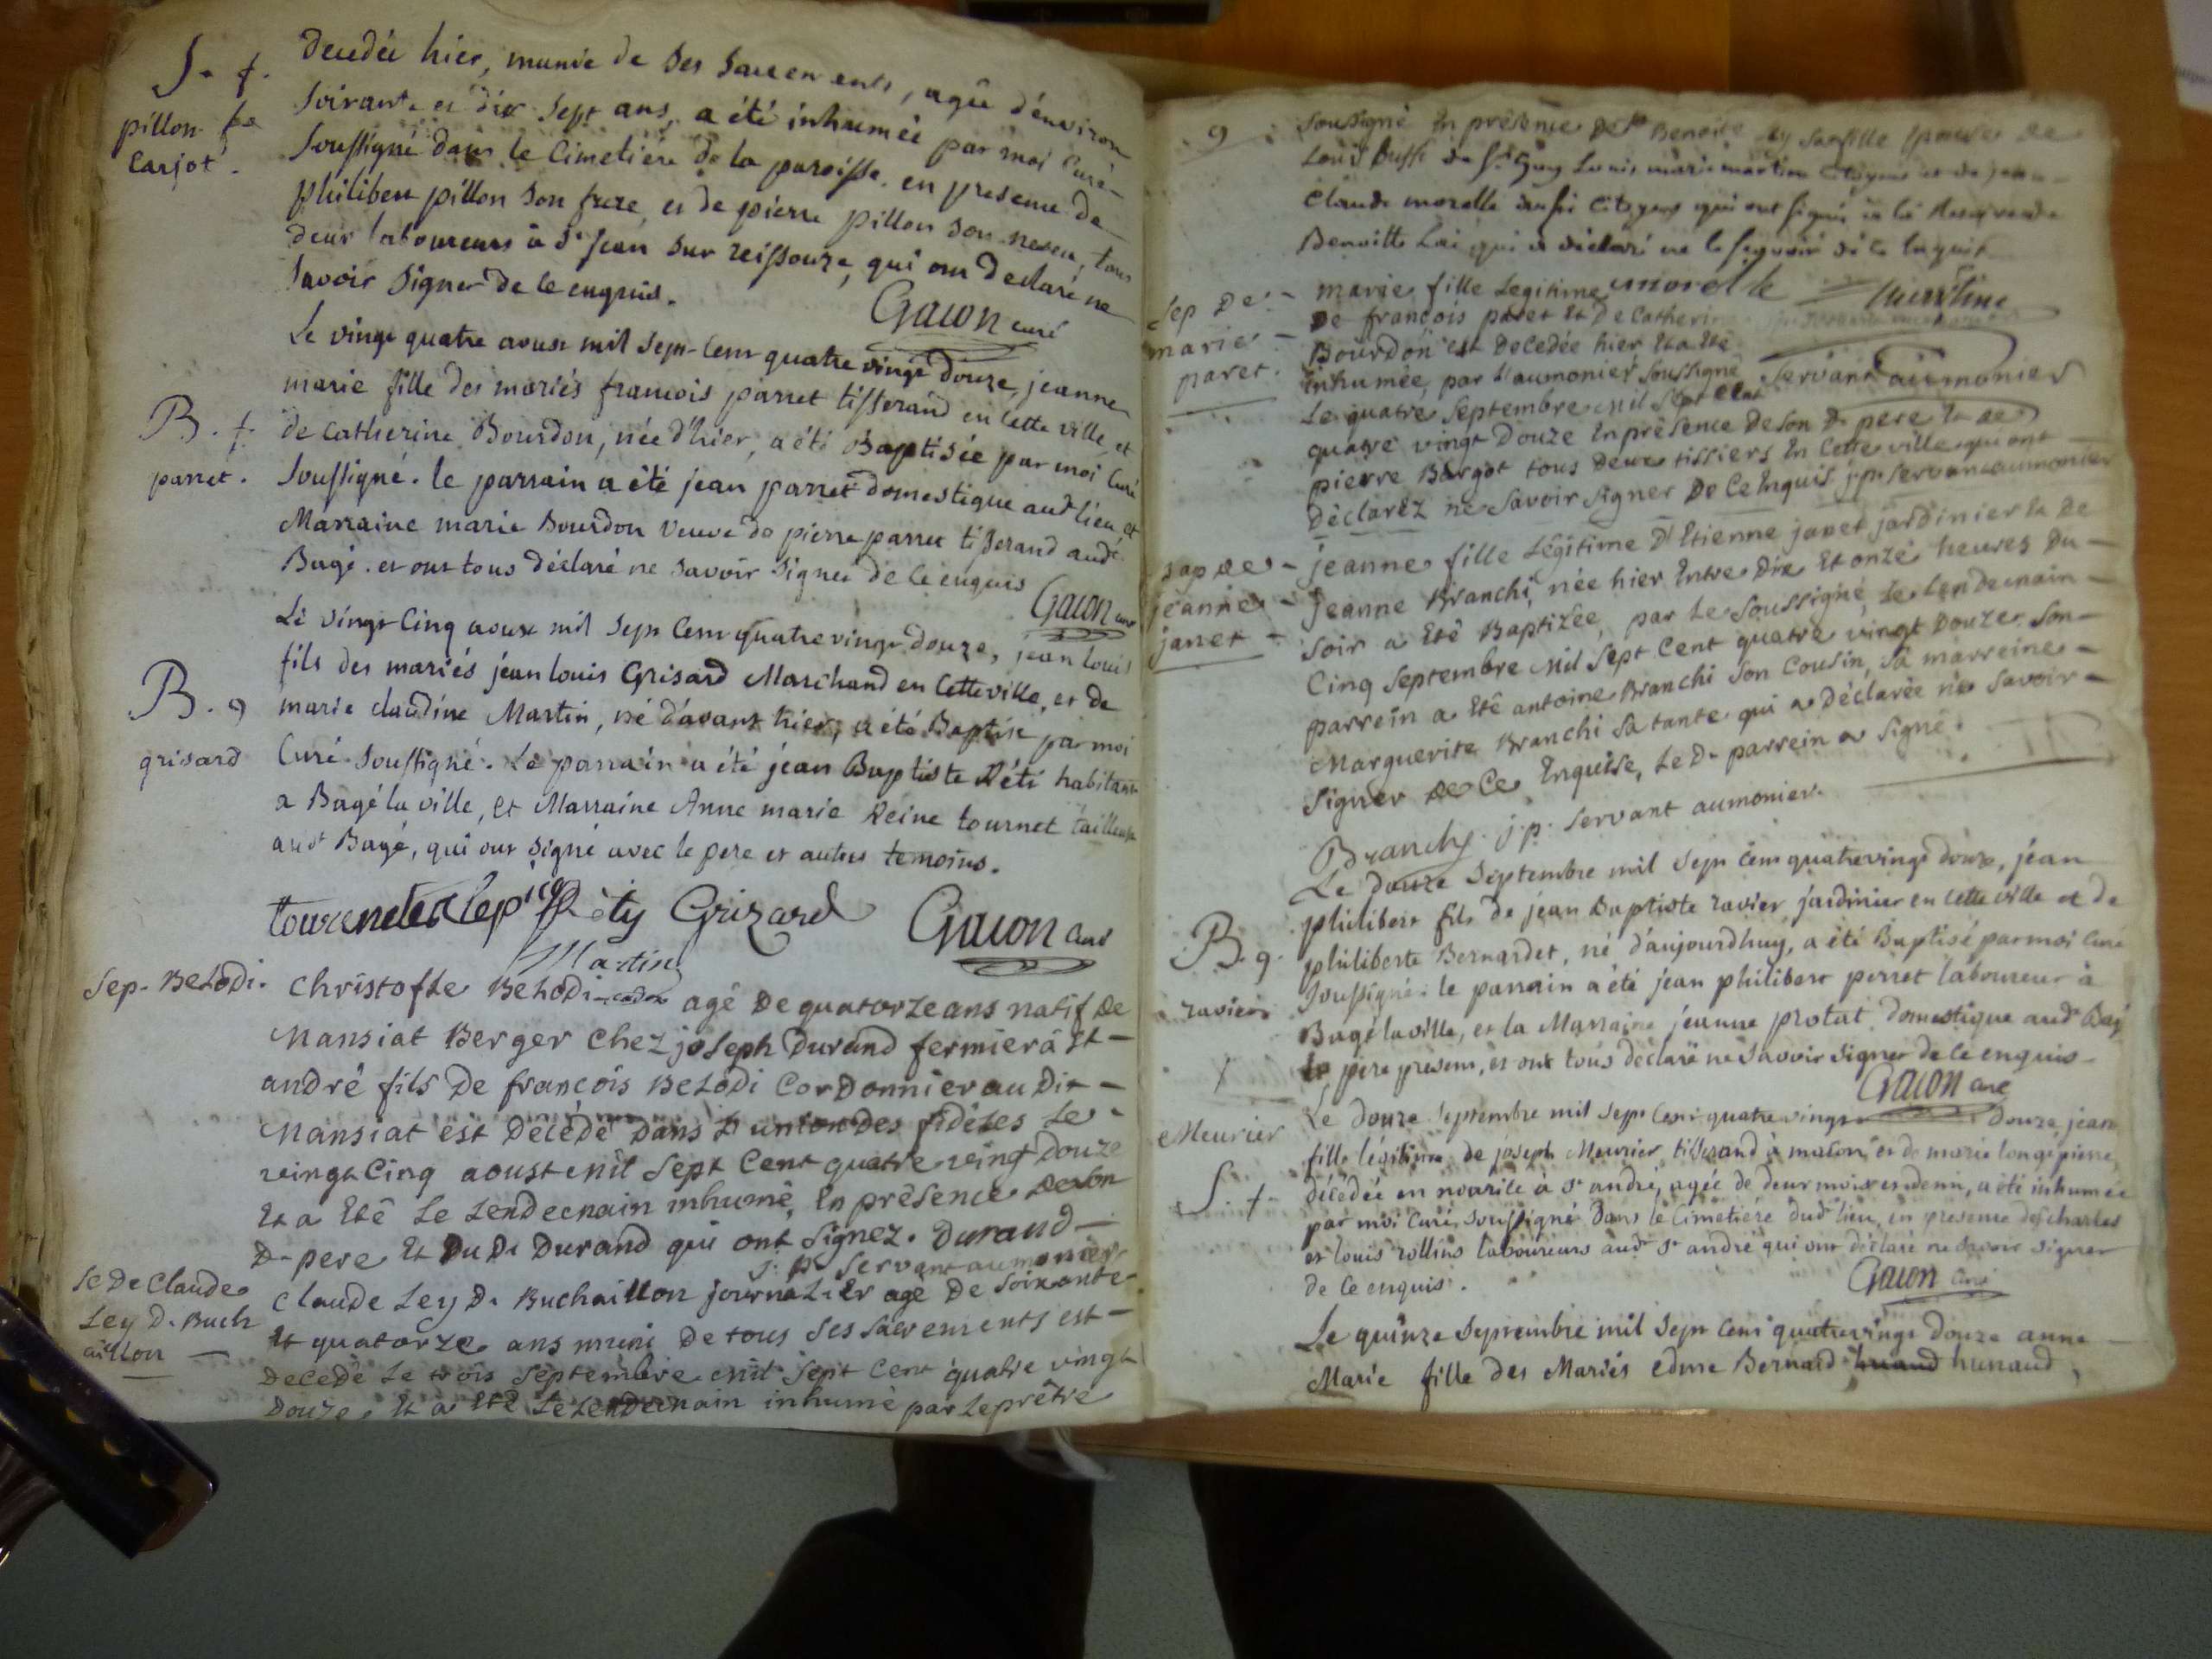 S. f.
pillon fe
Carjot.
decedée hier, munie de ses sacremens, agée d'environ
soixante et dix sept ans, a été inhumée par moi Curé
soussigné dans le Cimetiére de la paroisse. en presence de
philibert pillon son frere, et de pierre pillon son neveu, tous
deux laboureurs à St jean sur reissouze, qui ont declaré ne
savoir signer de ce enquis.
Gacon curé
B. f.
parret.
Le vingt quatre aoust mil sept cent quatre vingt douze, jeanne
marie fille des mariés francois parret tisserand en cette ville, et
de catherine Bourdon, née d'hier, a été Baptisée par moi Curé
soussigné. le parrain a été jean parret domestique audt lieu et
Marraine marie Bourdon veuve de pierre parret tisserand audt
Bagé. et ont tous déclaré ne savoir signer de ce enquis
Gacon curé
B. g
grisard
Le vingt Cinq aoust mil sept Cent quatre vingt douze, jean louis
fils des mariés jean louis Grisard Marchand en Cette ville, et de
marie claudine Martin, né d'avant hier, a été Baptisé par moi
Curé soussigné. Le parrain a été jean Baptiste Réti habitant
a Bagé la ville, et Marraine Anne marie Reine tournet tailleuse
audt Bagé, qui ont signé avec le pere et autres temoins.
Réty Grizard
Gacon Curé
Martin
Sep. Belodi.
Christofle Belodi agé De quatorze ans natif De
Mansiat Berger Chez joseph Durand fermier à St
andré fils De francois Belodi Cordonnier au Dit
Mansiat est Décédé Dans L'union des fidéles Le
vingt Cinq aoust mil Sept Cent quatre vingt Douze
Et a Eté Le Lendemain inhumé, En présence de son
D. pere Et Du D. Durand qui ont signez. Durand
j. p. Servant aumonier
Se De Claude
Ley D. Buch
aillon
Claude Ley D. Buchaillon journalier agé De Soixante
Et quatorze ans muni De tous ses sacrements est
Decedé Le trois Septembre mil Sept Cent quatre vingt
Douze, Et a Eté Le Lendemain inhumé par Le prêtre
9
soussigné En présence De Benoite Ley sa fille Epouse de
Louis marie martin Citoyen et de jean
Claude morelle aussi Citoyen qui ont signé
Benoitte Lai qui a déclaré ne le sçavoir de ce enquit
morelle
Martine
Sep De
marie
paret.
Marie fille Legitime
De francois paret Et De Catherine
Bourdon est Decedée hier Et a Eté
inhumée, par L'aumonier soussigné
Servant aumonier
Le quatre Septembre mil Sept Cent
quatre vingt Douze En présence De son D. pere Et de
pierre Bargot tous Deux tissiers En Cette ville qui ont
Déclarez ne savoir signer De Ce Enquis j. p. servant aumonier
Bap de
jeanne
janet
jeanne fille Légitime D'Etienne janet jardinier Et De
jeanne Branchi, née hier Entre Dix Et onze heures Du
soir a Eté Baptizée, par Le Soussigné, Le Lendemain
Cinq Septembre mil Sept Cent quatre vingt Douze, Son
parrein a Eté antoine Branchi Son Cousin, Sa marreine
Marguerite Branchi Sa tante qui a Déclarée ne savoir
signer De Ce Enquise, Le D. parrein a Signé.
Branchy. j. p. Servant aumonier.
B. g.
ravier
Le douze Septembre mil Sept cent quatre vingt douze, jean
philibert fils de jean Baptiste ravier jardinier en cette ville et de
philiberte Bernardet, né d'aujourdhuy, a été Baptisé par moi Curé
soussigné. le parrain a été jean philibert perret laboureur à
Bagé la ville, et la Marraine jeanne protat domestique audt Bagé
le pere present, et ont tous déclaré ne savoir signer de ce enquis
Gacon curé
Meurier
S. f.
Le douze Septembre mil Sept Cent quatre vingt douze jean
fille légitime de joseph Meurier tisserand à macon, et de marie longepierre,
décédée en nourice à St andré, agée de deux mois et demi, a été inhumée
par moi Curé soussigné dans le Cimetiére dudt lieu, en presence des charles
et louis rollins laboureurs audt St andré qui ont déclaré ne savoir signer
de ce enquis.
Gacon Curé
Le quinze Septembre mil Sept Cent quatre vingt douze anne
Marie fille des Mariés edme Bernard hunaud,